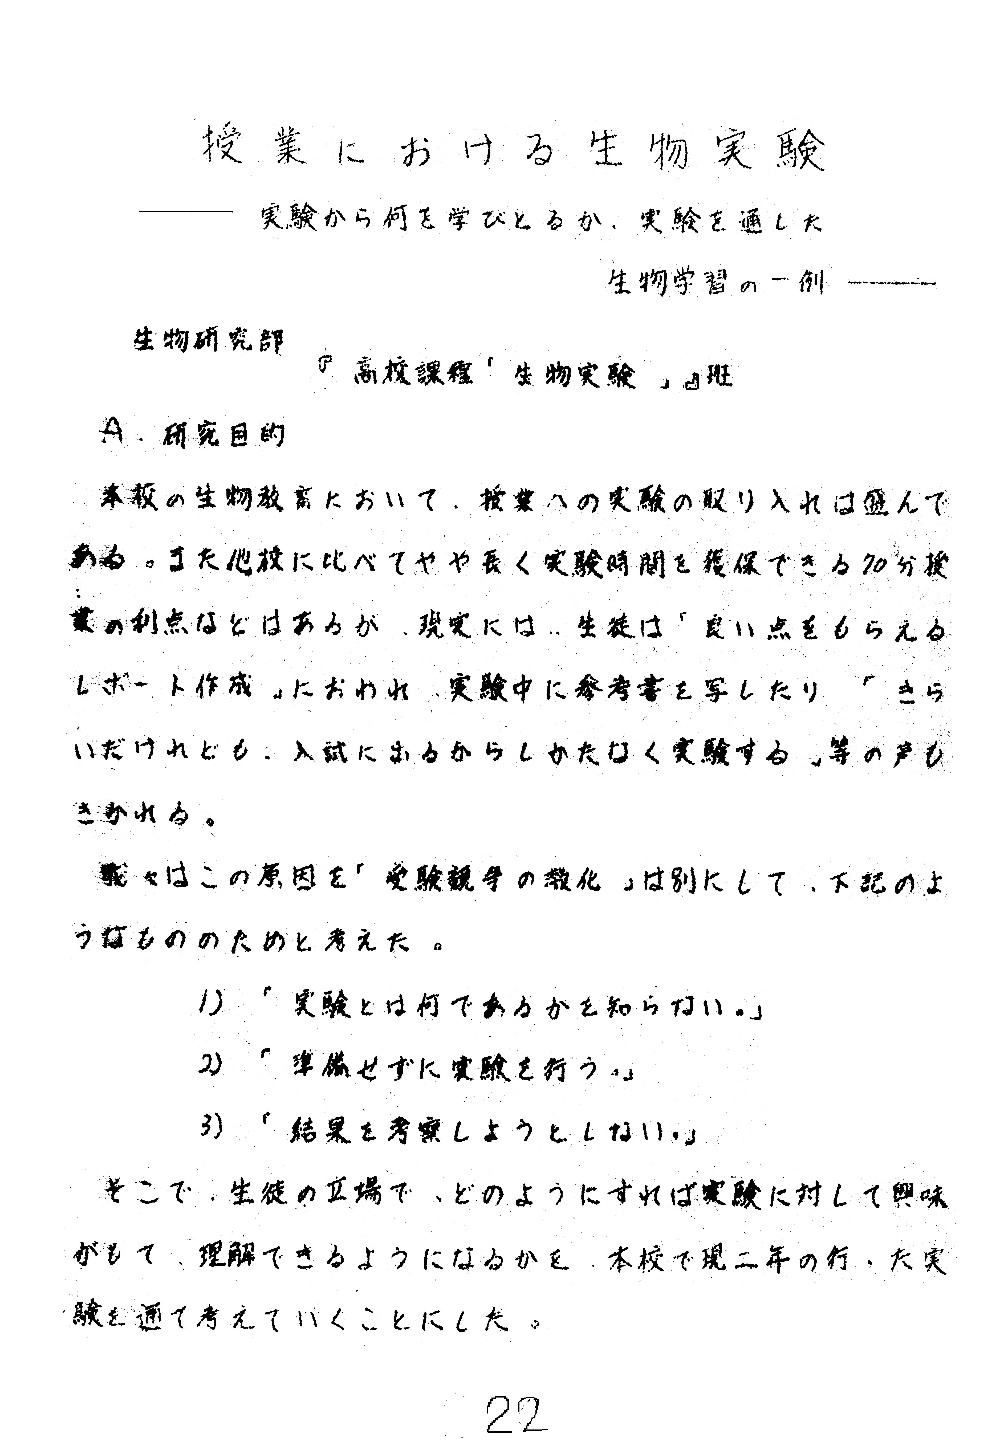 授業における生物実験
―― 実験から何を学びとるか、実験を通した
生物学習の一例 ――
生物研究部
『高校課程「生物実験」』班
A. 研究目的
本校の生物教育において、授業への実験の取り入れは盛んで
ある。また他校に比べてやや長く実験時間を獲保できる70分授
業の利点などはあるが、現実には、生徒は「良い点をもらえる
レポート作成」におわれ、実験中に参考書を写したり「きら
いだけれども、入試に出るからしかたなく実験する」等の声も
きかれる。
我々はこの原因を「受験競争の激化」は別にして、下記のよ
うなもののためと考えた。
1) 「実験とは何であるかを知らない。」
2) 「準備せずに実験を行う。」
3) 「結果を考察しようとしない。」
そこで、生徒の立場で、どのようにすれば実験に対して興味
がもて、理解できるようになるかを、本校で現二年の行った実
験を通て考えていくことにした。
22